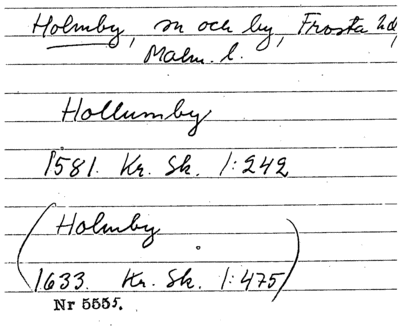 Holmby, sn och by, Frosta hd,
Malm. l.
Hollumby
1581. Kr. Sk. 1:242
(Holmby
1633. Kr. Sk. 1:475)
Nr 5555.